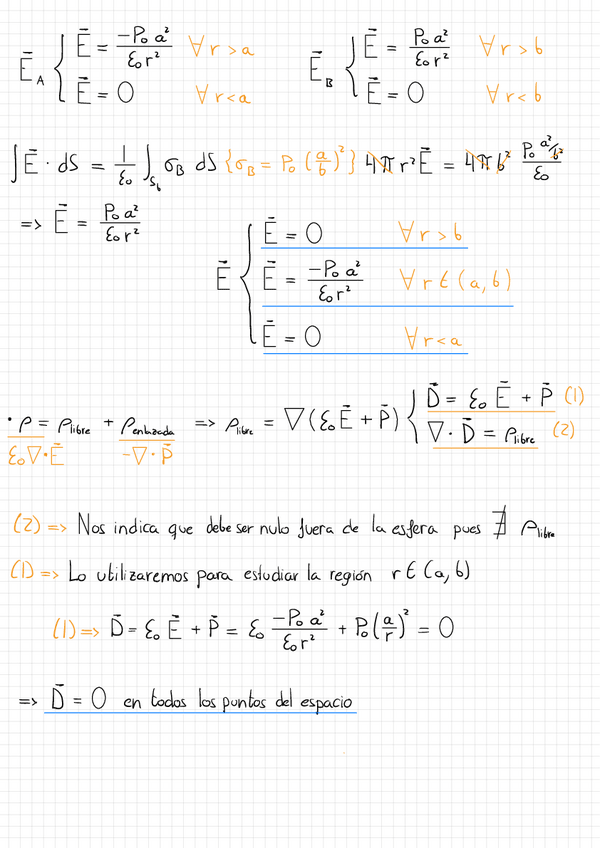 E⃗_A { E⃗ = -P₀a²/ε₀r² ∀ r > a E⃗_B { E⃗ = P₀a²/ε₀r² ∀ r > b
E⃗ = 0 ∀ r < a E⃗ = 0 ∀ r < b
∫E⃗ · dS = 1/ε₀ ∫_{S_b} σ_B dS {σ_B = P₀ (a/b)²} 4π r² E⃗ = 4π b² P₀ a²/b² / ε₀
=> E⃗ = P₀a²/ε₀r²
E⃗ { E⃗ = 0 ∀ r > b
E⃗ = -P₀a²/ε₀r² ∀ r ∈ (a, b)
E⃗ = 0 ∀ r < a
· ρ = ρ_libre + ρ_enlazada => ρ_libre = ∇(ε₀E⃗ + P⃗) { D⃗ = ε₀ E⃗ + P⃗ (1)
ε₀∇·E⃗ -∇·P⃗ ∇·D⃗ = ρ_libre (2)
(2) => Nos indica que debe ser nulo fuera de la esfera pues ∄ ρ_libre
(1) => Lo utilizaremos para estudiar la región r ∈ (a, b)
(1) => D⃗ = ε₀ E⃗ + P⃗ = ε₀ -P₀a²/ε₀r² + P₀(a/r)² = 0
=> D⃗ = 0 en todos los puntos del espacio